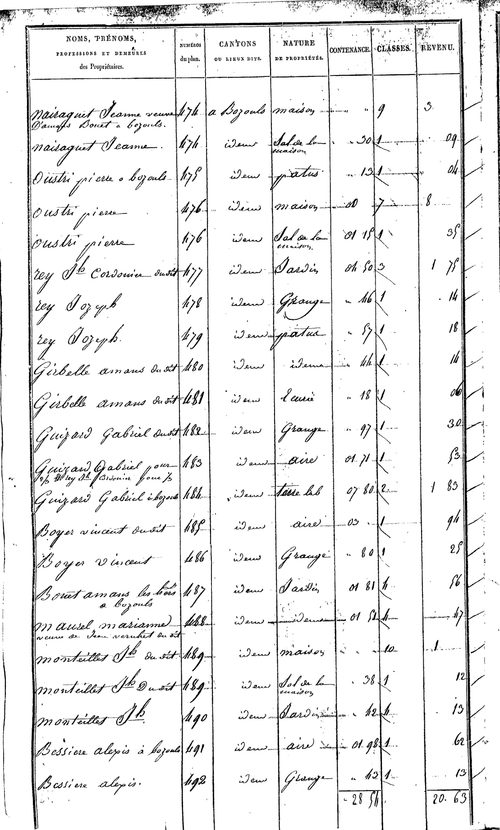 NOMS, PRÉNOMS, PROFESSIONS ET DEMEURES des Propriétaires. NUMÉROS du plan. CANTONS OU LIEUX DITS. NATURE DE PROPRIÉTÉS. CONTENANCE. CLASSES. REVENU.
naisaguet Jeanne veuve 474 a Bozouls maison " 9 3
D'amans Bouet a bozouls.
naisaguet Jeanne. 474 idem Sol de la maison " 30 1 09
Oustri pierre a bozouls 475 idem patus " 13 1 04
oustri pierre 476 idem maison 7 8
oustri pierre 476 idem Sol de la maison 01 15 1 35
rey Jh Cordonier dudit 477 idem Jardin 04 50 3 1 75
rey Jozeph 478 idem Grange " 46 1 14
rey Jozeph. 479 idem patus " 57 1 18
Girbelle amans dudit 480 idem idem " 44 1 14
Girbelle amans dudit 481 idem Ecurie " 18 1 06
Guizard Gabriel dudit 482 idem Grange " 97 1 30
Guizard Gabriel pour 483 idem aire 01 71 1 53
Guizard Gabriel à bozouls 484 idem terre lab 07 80 2 1 83
Boyer vincent dudit 485 idem aire 03 1 94
Boyer vincent 486 idem Grange " 80 1 25
Bouet amans les hoirs 487 idem Jardin 01 81 4 56
a bozouls
maurel marianne 488 idem idem 01 51 4 47
veuve de
monteillet Jh dudit 489 idem maison 10 1
monteillet Jh Dudit 489 idem Sol de la maison " 38 1 12
monteillet Jh 490 idem Jardin " 42 4 13
Bessiere alexis à bozouls 491 idem aire 01 98 1 62
Bessiere alexis. 492 idem Grange " 43 1 13
28 54 20. 63